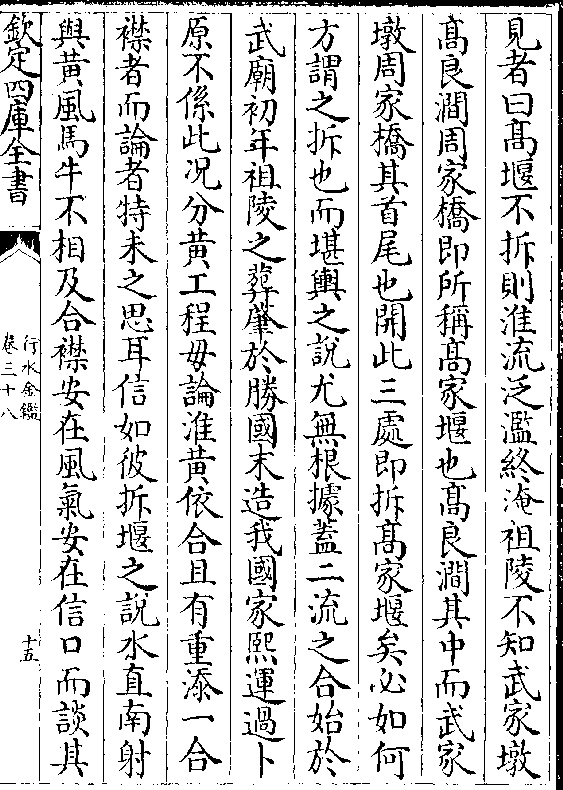 見者曰髙堰不拆則淮流泛濫終淹祖陵不知武家墩
髙良澗周家橋即所稱髙家堰也髙良澗其中而武家
墩周家橋其首尾也開此三處即拆髙家堰矣必如何
方謂之拆也而堪輿之說尤無根據蓋二流之合始於
武廟初年祖陵之葬肇於勝國末造我國家熙運過卜
原不係此况分黄工程毋論淮黄依合且有重添一合
襟者而論者特未之思耳信如彼拆堰之說水直南射
與黄風馬牛不相及合襟安在風氣安在信口而談其
欽定四庫全書
行水金鑑
卷三十八
十五